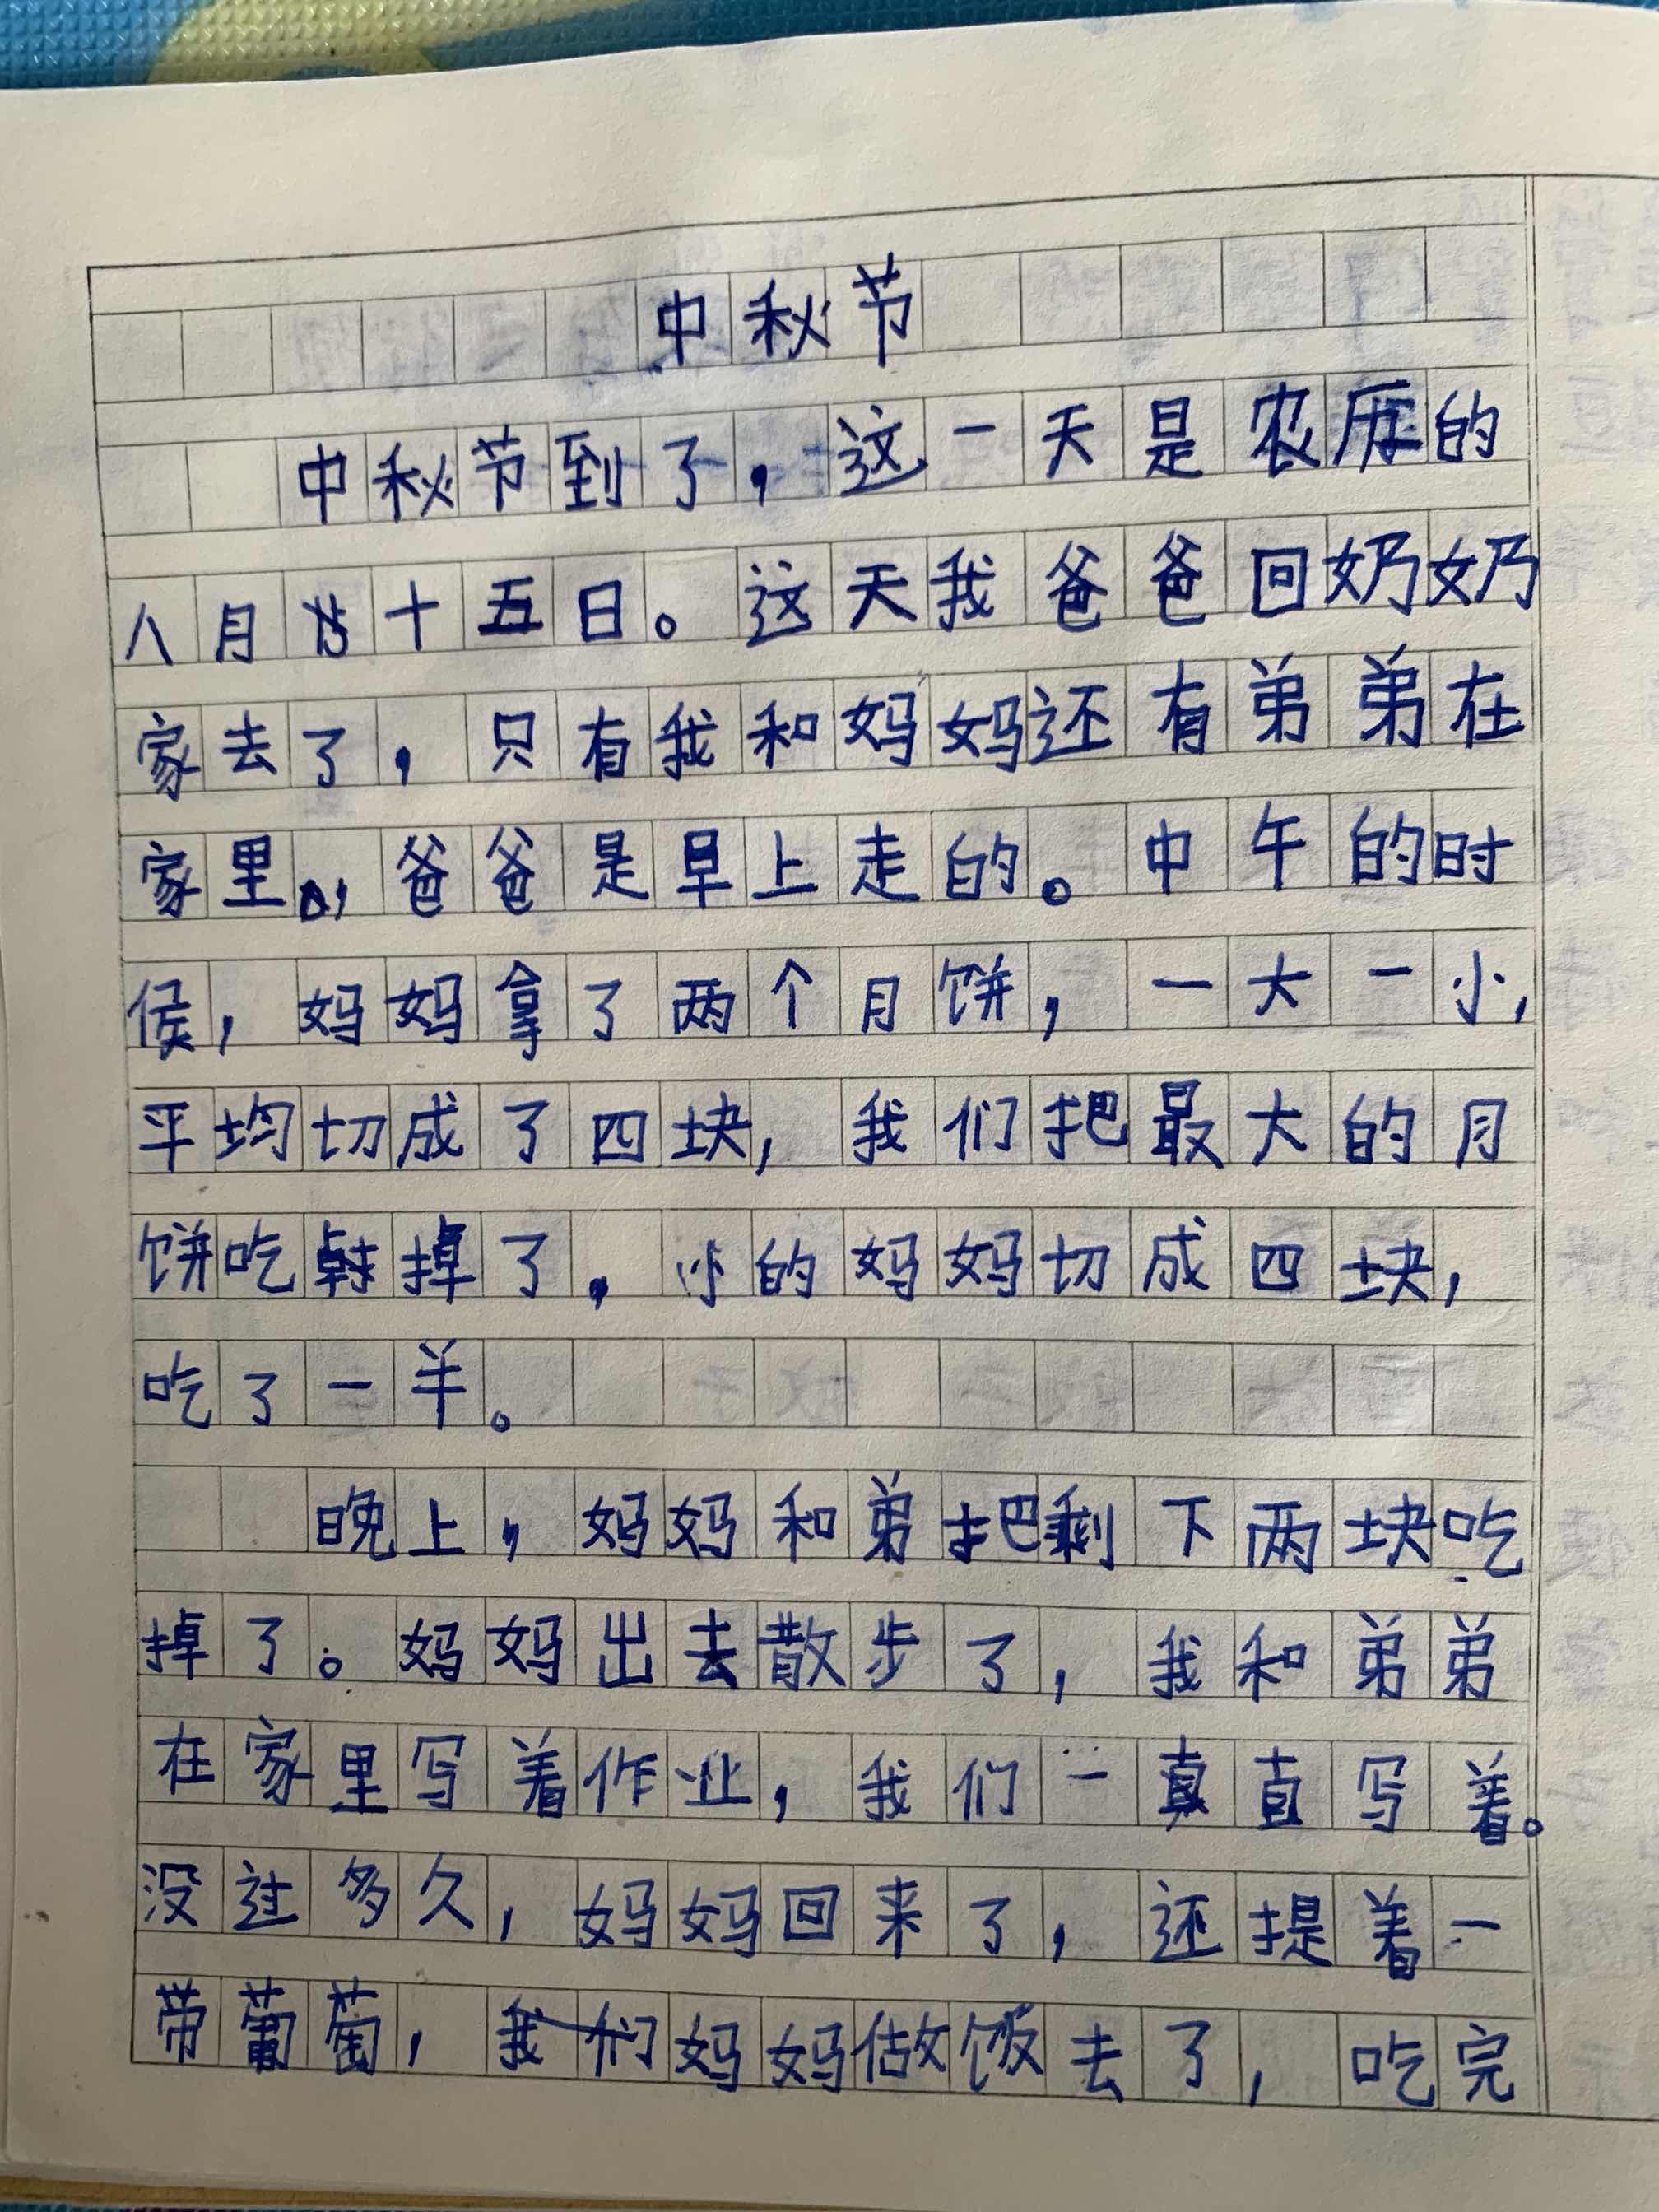 中秋节
中秋节到了，这一天是农历的
八月十五日。这天我爸爸回奶奶
家去了，只有我和妈妈还有弟弟在
家里，爸爸是早上走的。中午的时
侯，妈妈拿了两个月饼，一大一小，
平均切成了四块，我们把最大的月
饼吃掉了，小的妈妈切成四块，
吃了一半。
晚上，妈妈和弟把剩下两块吃
掉了。妈妈出去散步了，我和弟弟
在家里写着作业，我们一直写着。
没过多久，妈妈回来了，还提着一
带葡萄，妈妈做饭去了，吃完